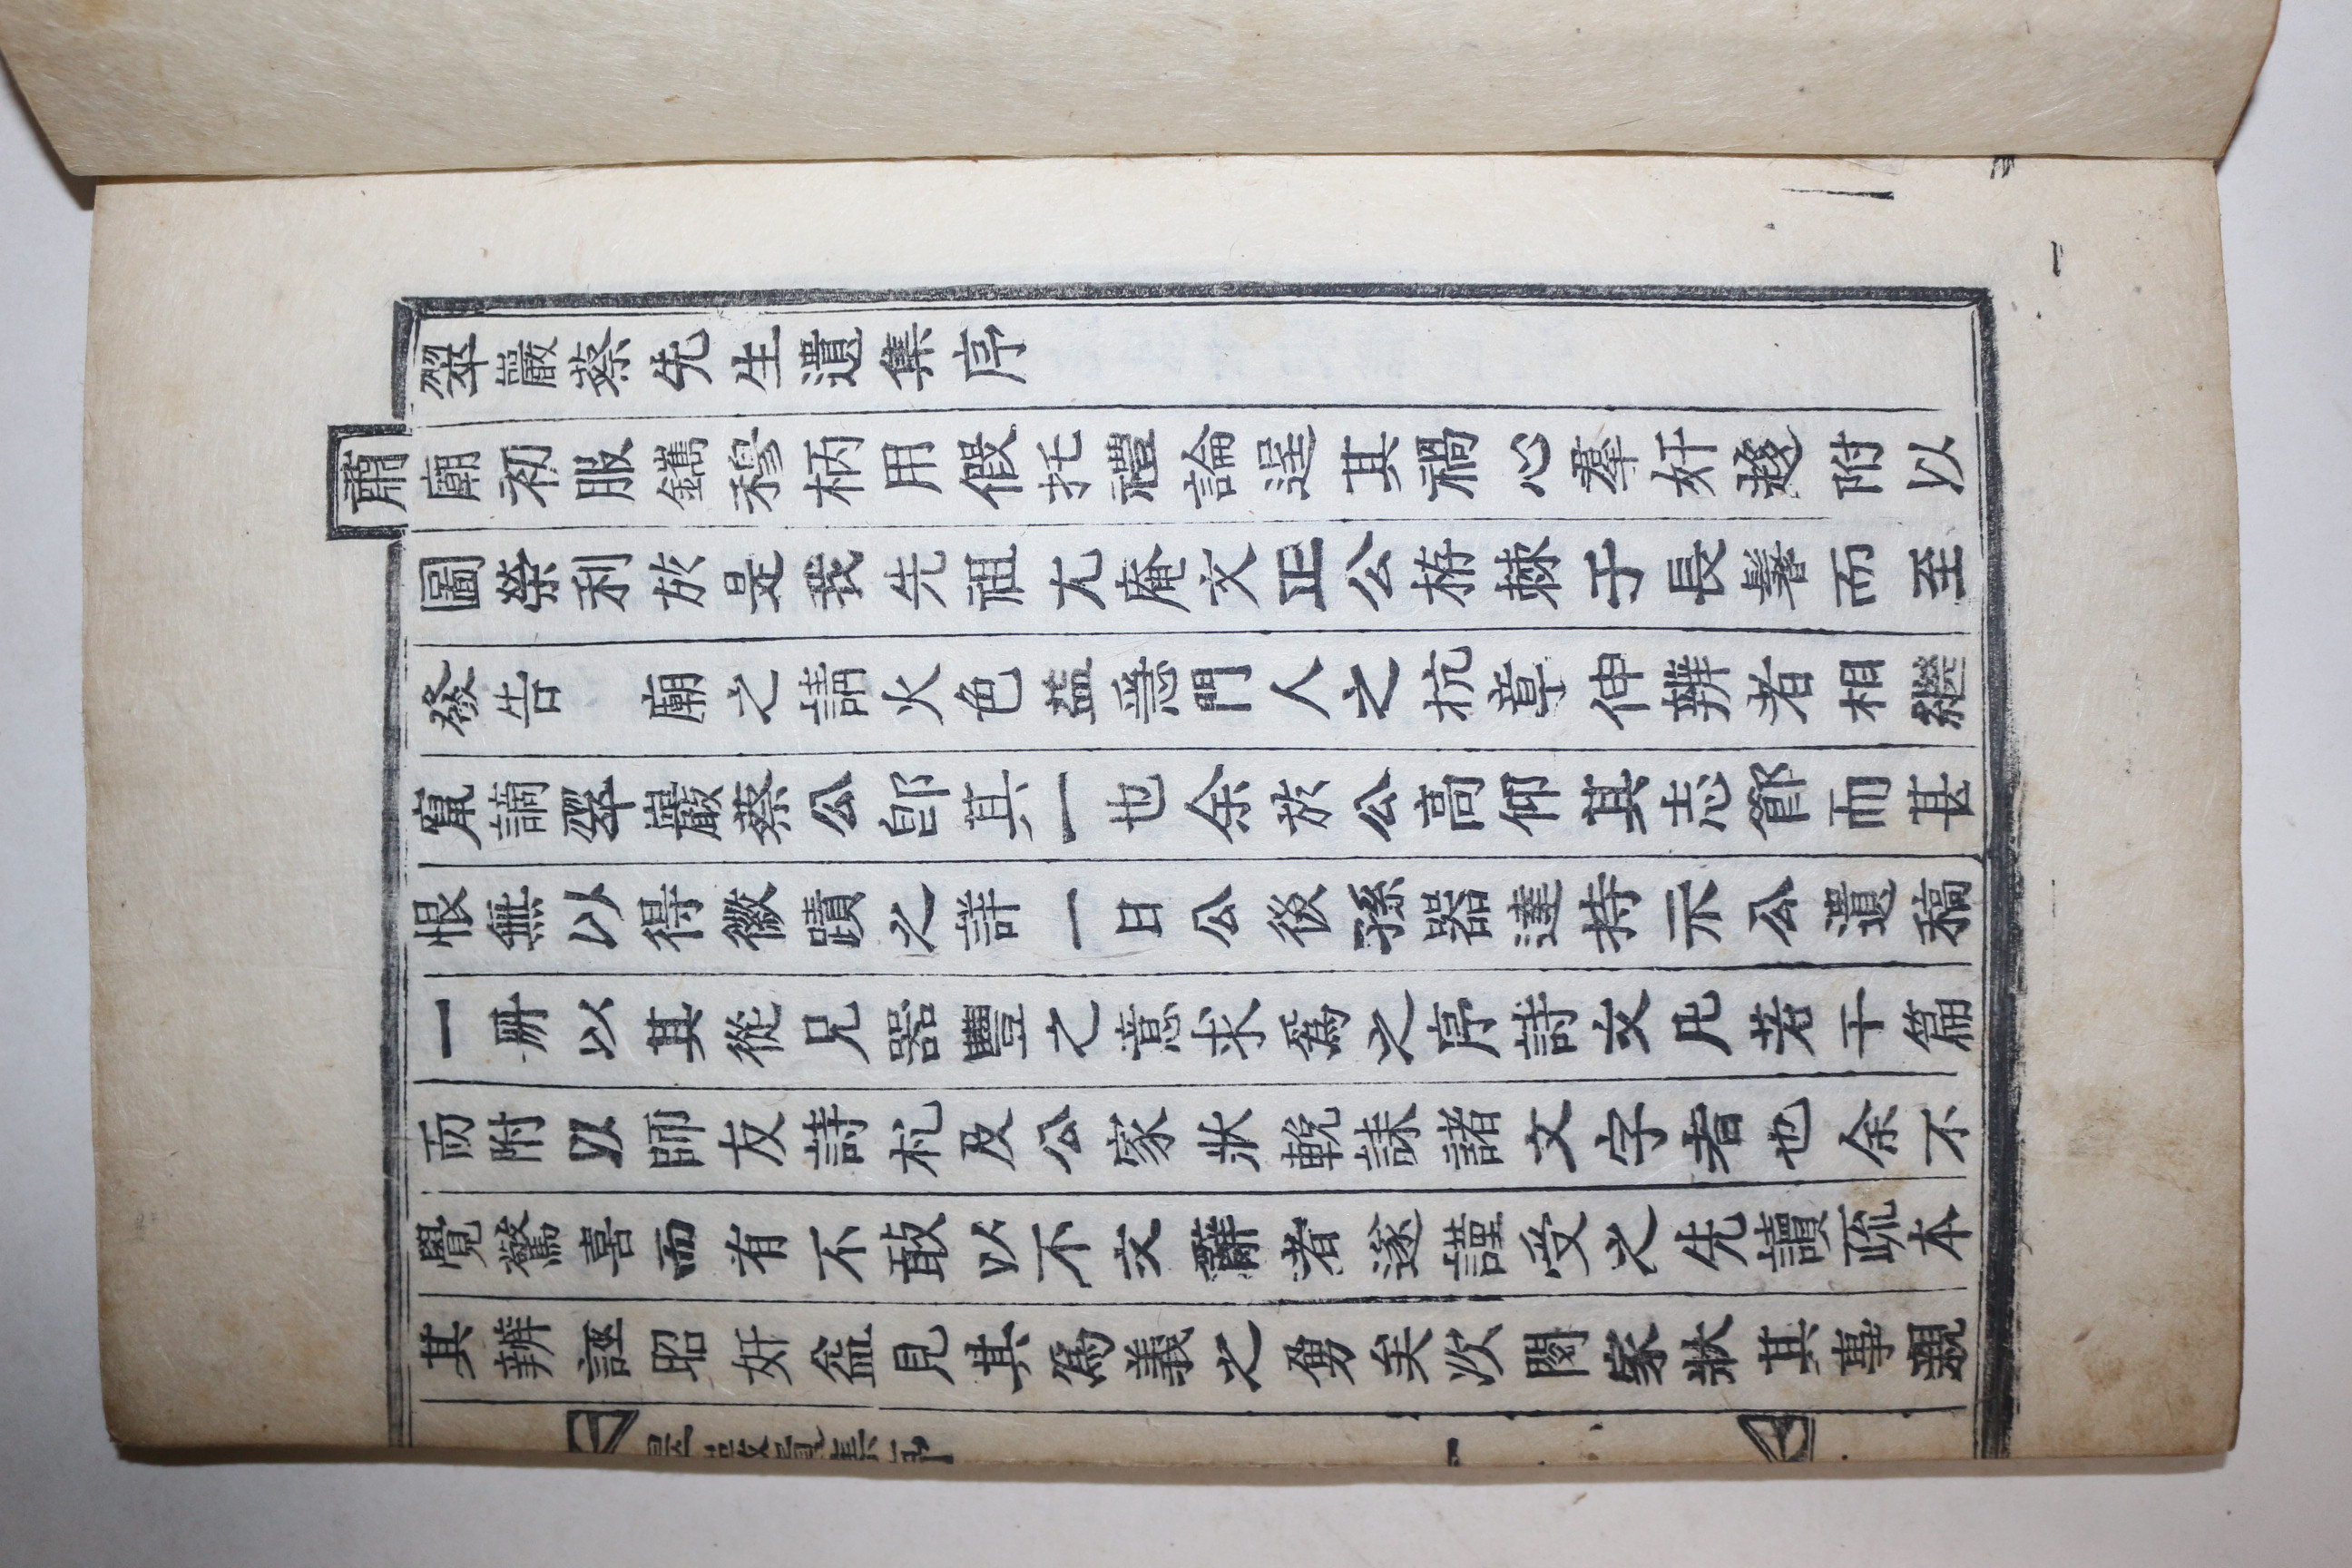 翠巖蔡先生遺集序
肅廟初服鑴穆柄用假托禮論逞其禍心羣奸趍附以
圖榮利於是我先祖尤庵文正公栫棘于長鬐而至
發告 廟之請火色益急門人之抗章伸辨者相繼
竄謫翠巖蔡公卽其一也余於公高仰其志節而甚
恨無以得徽蹟之詳一日公後孫器達持示公遺稿
一冊以其從兄器豐之意求爲之序詩文凡若干篇
而附以師友詩札及公家狀輓誄諸文字者也余不
覺驚喜而有不敢以不文辭者遂謹受之先讀疏本
其辨誣昭奸益見其爲義之勇矣次閱家狀其事親